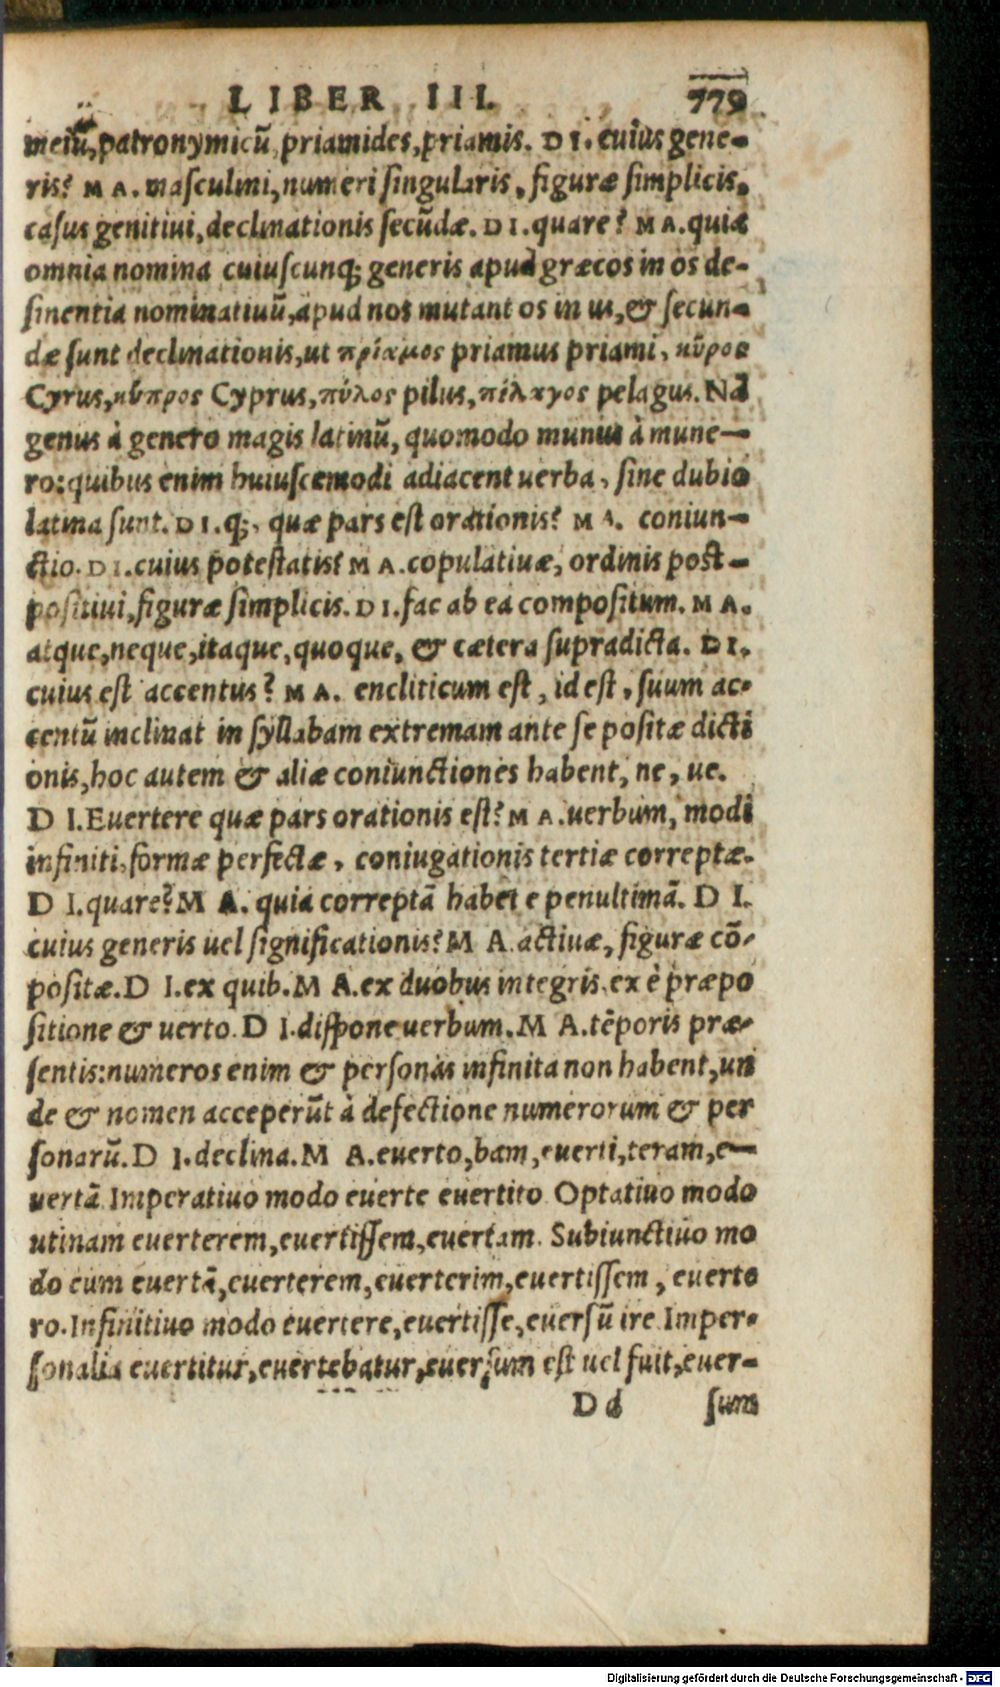 LIBER III. 779
meiũ, patronymicũ, priamides, priamis. D I. cuius gene-
ris? M A. masculini, numeri singularis, figuræ simplicis,
casus genitiui, declinationis secũdæ. D I. quare? M A. quia
omnia nomina cuiuscunq; generis apud græcos in os de-
sinentia nominatiuũ, apud nos mutant os in us, & secun-
dæ sunt declinationis, ut πρίαμος priamus priami, κῦρος
Cyrus, κύπρος Cyprus, πύλος pilus, πέλαγος pelagus. Nã
genus à genero magis latinũ, quomodo munus à mune-
ro: quibus enim huiuscemodi adiacent uerba, sine dubio
latina sunt. D I. q;, quæ pars est orationis? M A. coniun-
ctio. D I. cuius potestatis? M A. copulatiuæ, ordinis post-
positiui, figuræ simplicis. D I. fac ab ea compositum. M A.
atque, neque, itaque, quoque, & cætera supradicta. D I.
cuius est accentus? M A. encliticum est, id est, suum ac-
centũ inclinat in syllabam extremam ante se positæ dicti
onis, hoc autem & aliæ coniunctiones habent, ne, ue.
D I. Euertere quæ pars orationis est? M A. uerbum, modi
infiniti, formæ perfectæ, coniugationis tertiæ correptæ.
D I. quare? M A. quia correptã habet e penultimã. D I.
cuius generis uel significationis? M A. actiuæ, figuræ cõ-
positæ. D I. ex quib. M A. ex duobus integris, ex è præpo
sitione & uerto. D I. dispone uerbum. M A. tẽporis præ-
sentis: numeros enim & personas infinita non habent, un
de & nomen acceperũt à defectione numerorum & per
sonarũ. D I. declina. M A. euerto, bam, euerti, teram, e-
uertã. Imperatiuo modo euerte euertito. Optatiuo modo
utinam euerterem, euertissem, euertam. Subiunctiuo mo
do cum euertã, euerterem, euerterim, euertissem, euerte
ro. Infinitiuo modo euertere, euertisse, euersũ ire. Imper-
sonalia euertitur, euertebatur, euersum est uel fuit, euer-
D d sum
Digitalisierung gefördert durch die Deutsche Forschungsgemeinschaft - DFG